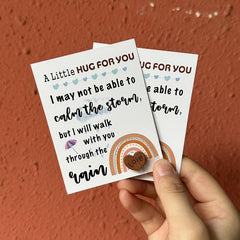 A Little HUG FOR YOU
I may not be able to
calm the storm,
but I will walk
with you
through the
rain
HUG FOR YOU
able to
storm,